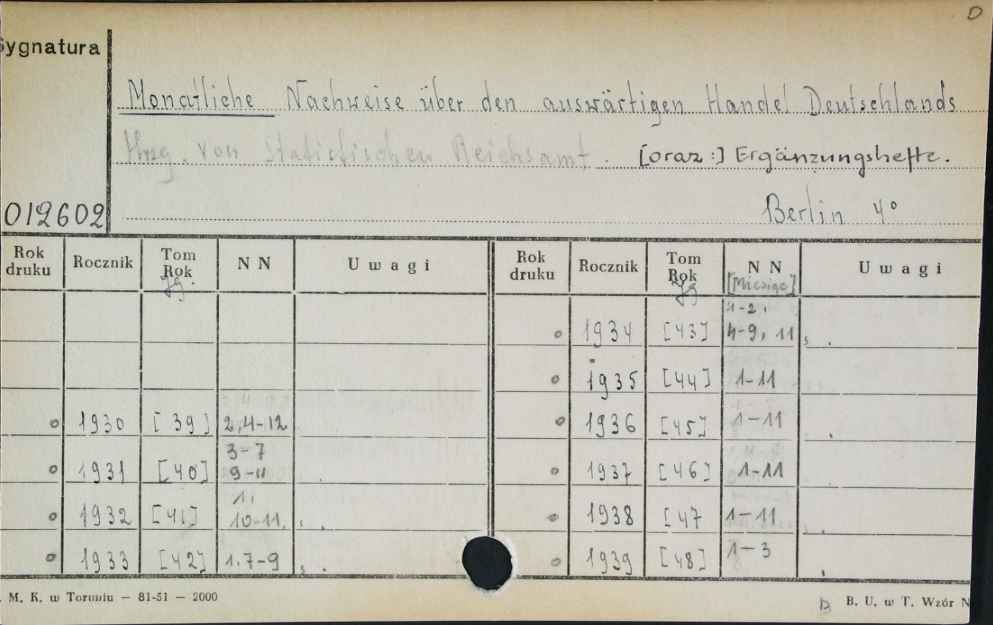 D
Sygnatura
Monatliche Nachweise über den auswärtigen Handel Deutschlands
Hrsg. von Statistischen Reichsamt. [oraz:] Ergänzungshefte.
012602
Berlin 4°
Rok druku Rocznik Tom Rok Jg. NN Uwagi Rok druku Rocznik Tom Rok Jg NN [Miesiące] Uwagi
o 1934 [43] 1-2, 4-9, 11
o 1935 [44] 1-11
o 1930 [39] 2,4-12 o 1936 [45] 1-11
o 1931 [40] 3-7 9-11 o 1937 [46] 1-11
o 1932 [41] 1, 10-11. o 1938 [47 1-11
o 1933 [42] 1.7-9 o 1939 [48] 1-3
. M. K. w Toruniu — 81-51 — 2000
B. U. w T. Wzór N